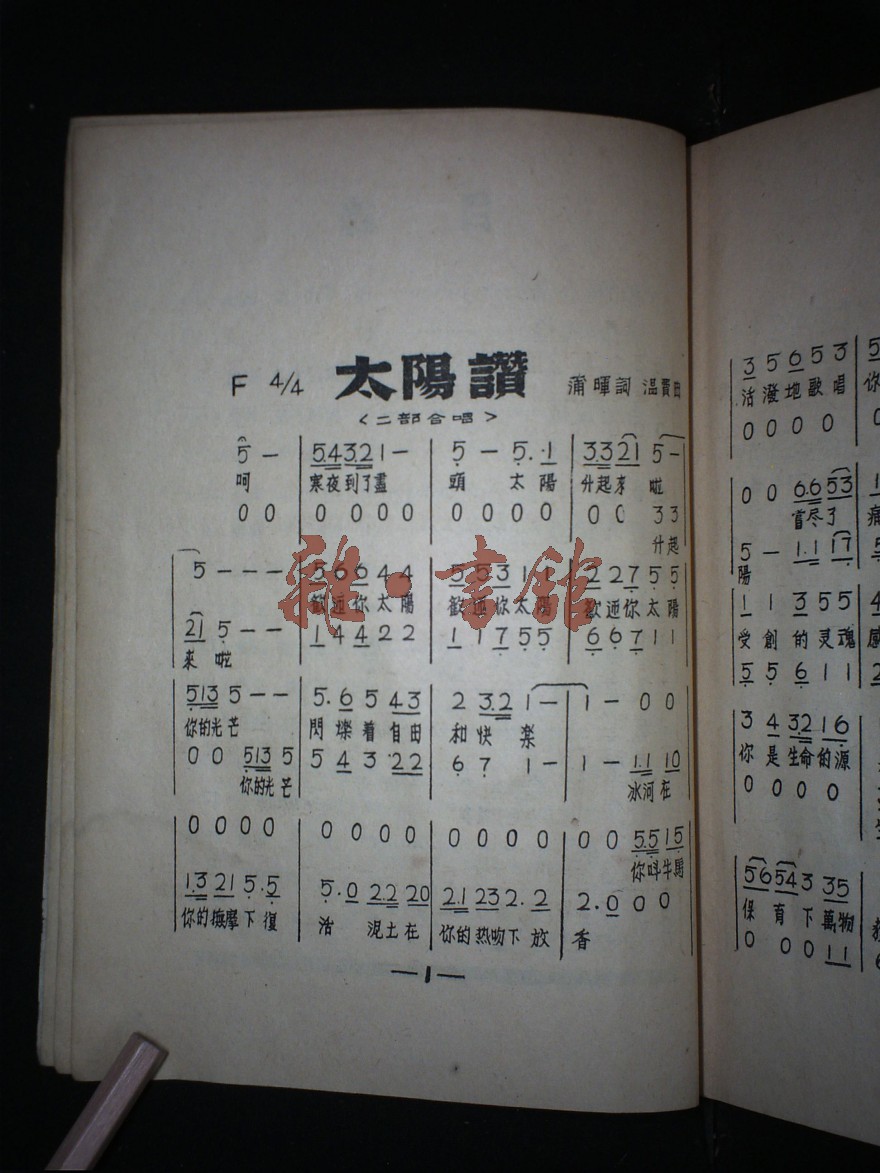 F 4/4 太陽讚 蒲暉詞 温賁曲
<二部合唱>
5 — | 5.4 3.2 1 — | 5 — 5. 1 | 3.3 21 5 —
呵 寒夜到了盡 頭 太陽 升起來 啦
0 0 | 0 0 0 0 | 0 0 0 0 | 0 0 3 3
升起
5 — — — | 5 6 6 4 4 | 5 5 3 1 1 | 2 2 7 5 5
歡迊你太陽 歡迊你太陽 歡迊你太陽
21 5 — — | 1 4 4 2 2 | 1 1 7 5 5 | 6 6 7 1 1
來 啦
513 5 — — | 5. 6 5 43 | 2 3.2 1 — | 1 — 0 0
你的光芒 閃爍着自由 和快樂
0 0 513 5 | 5 4 3 22 | 6 7 1 — | 1 — 1.1 10
你的光芒 冰河在
0 0 0 0 | 0 0 0 0 | 0 0 0 0 | 0 0 5.5 15
你呌牛馬
1.3 21 5. 5 | 5. 0 2.2 20 | 2.1 23 2. 2 | 2. 0 0 0
你的撫摩下復 活 泥土在 你的热吻下放 香
—1—
雜·書館
3 5 6 5 3 5
活潑地歌唱 你
0 0 0 0
0 0 6.6 53 1
嘗尽了 痛
5 — 1.1 17 5
陽
1 1 3 5 5 4
受創的灵魂 感
5 5 6 1 1 2
3 4 32 16
你是生命的源
0 0 0 0
56 54 3 35
保育下萬物
0 0 0 11 6